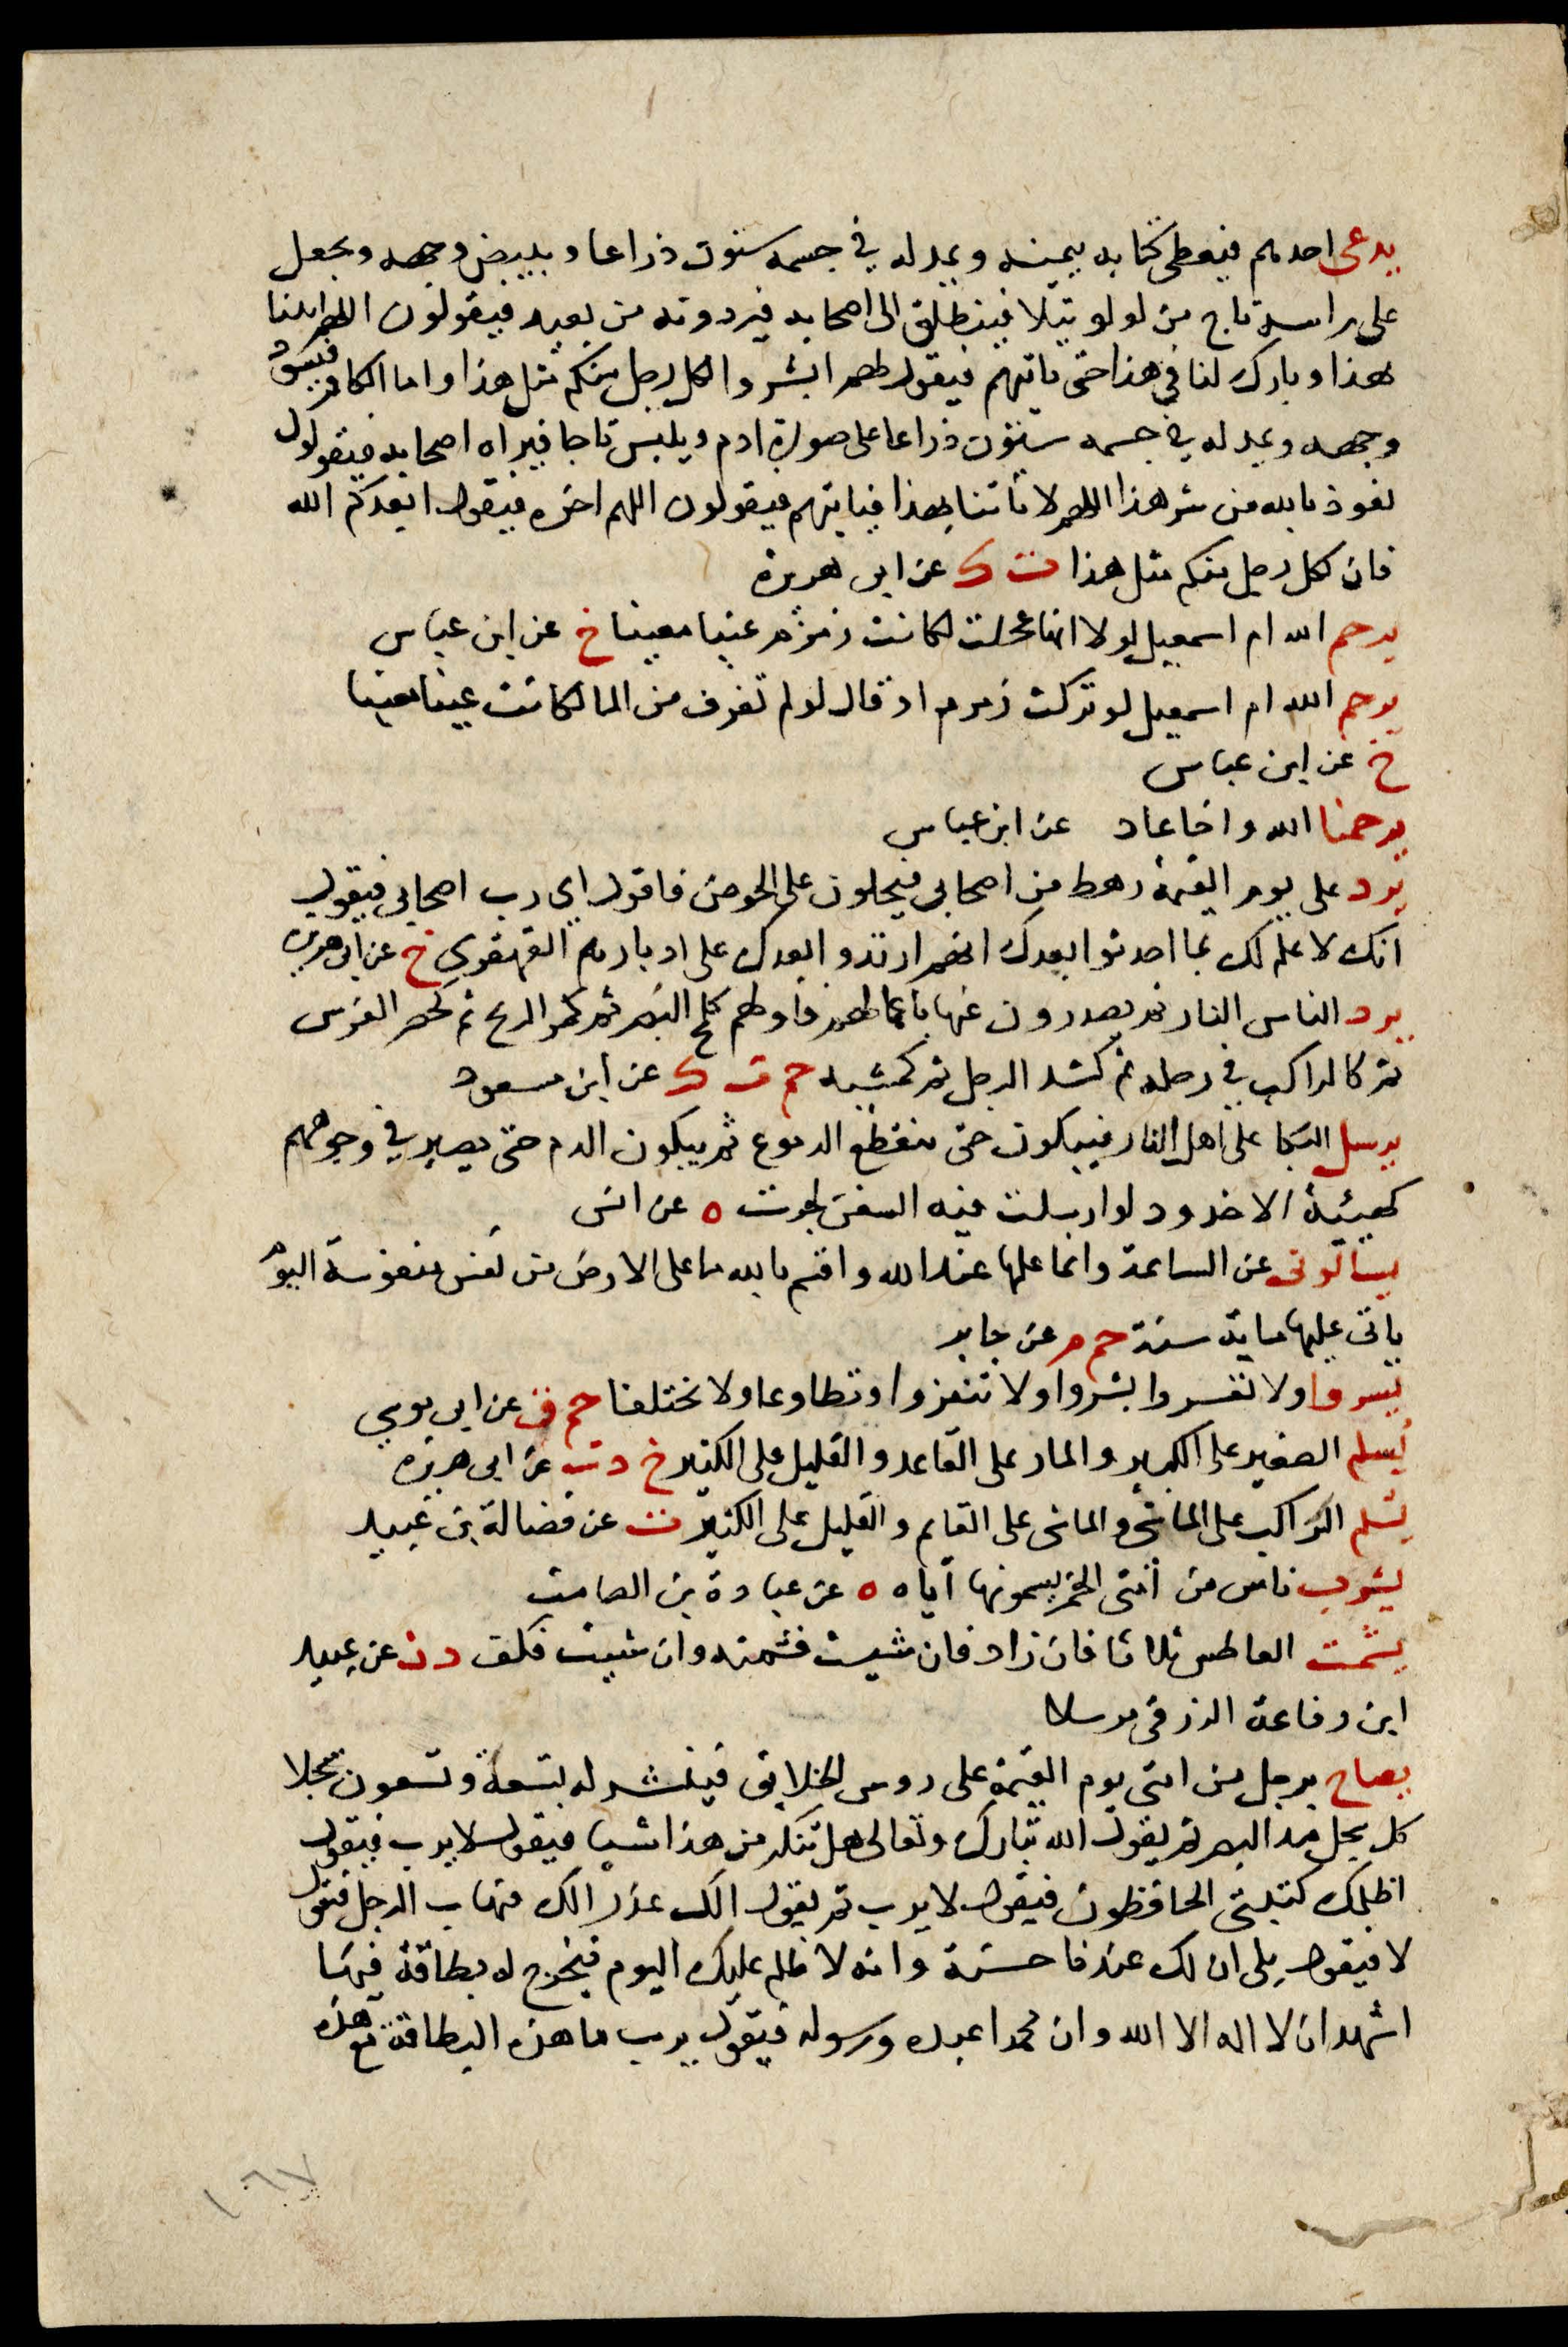 يدعى احدهم فيعطى كتابه بيمينه ويمد له في جسمه ستون ذراعا ويبيض وجهه ويجعل
على راسه تاج من لولو يتلالا فينطلق الى اصحابه فيردونه من بعيد فيقولون اللهم ايتنا
بهذا وبارك لنا في هذا حتى ياتيهم فيقول لهم ابشروا لكل رجل منكم مثل هذا واما الكافر فيسود
وجهه ويمد له في جسمه ستون ذراعا على صورة ادم ويلبس تاجا فيراه اصحابه فيقولون
نعوذ بالله من شر هذا اللهم لا تاتنا بهذا فياتيهم فيقولون اللهم اخزه فيقول ابعدكم الله
فان لكل رجل منكم مثل هذا ت ك عن ابي هريرة
يرحم الله ام اسمعيل لولا انها عجلت لكانت زمزم عينا معينا خ عن ابن عباس
يرحم الله ام اسمعيل لو تركت زمزم او قال لو لم تغرف من الما لكانت عينا معينا
خ عن ابن عباس
يرحمنا الله واخا عاد عن ابن عباس
يرد على يوم القيمة رهط من اصحابي فيحلون على الحوض فاقول اي رب اصحابي فيقول
انك لا علم لك بما احدثوا بعدك انهم ارتدوا بعدك على ادبارهم القهقري خ عن ابي هريرة
يرد الناس النار ثم يصدرون عنها باعمالهم فاولهم كلمح البصر ثم كمر الريح ثم كحضر الفرس
ثم كالراكب في رحله ثم كشد الرجل ثم كمشيه حم ت ك عن ابن مسعود
يرسل البكا على اهل النار فيبكون حتى تنقطع الدموع ثم يبكون الدم حتى يصير في وجوههم
كهيئة الاخدود لو ارسلت فيه السفن لجرت ه عن انس
يسالونى عن الساعة وانما علمها عند الله واقسم بالله ما على الارض من نفس منفوسة اليوم
ياتى عليها ماية سنة حم م عن جابر
يسروا ولا تعسروا بشروا ولا تنفروا وتطاوعا ولا تختلفا حم ق عن ابي موسى
يسلم الصغير على الكبير والمار على القاعد والقليل على الكثير خ د ت عن ابي هريرة
يسلم الراكب على الماشي والماشى على القايم والقليل على الكثير ت عن فضالة بن عبيد
يشرب ناس من امتى الخمر يسمونها اياه ه عن عبادة بن الصامت
يشمت العاطس ثلاثا فان زاد فان شيت فشمته وان شيت فكف د ت عن عبيد
ابن رفاعة الزرقى مرسلا
يصاح برجل من امتى يوم القيمة على روس الخلايق فينشر له بتسعة وتسعون سجلا
كل سجل مد البصر ثم يقول الله تبارك وتعالى هل تنكر من هذا شيا فيقول لا يرب فيقول
اظلمك كتبتى الحافظون فيقول لا يرب ثم يقول الك عذر الك فيهاب الرجل فيقول
لا فيقول بلى ان لك عندنا حسنة وانه لا ظلم عليك اليوم فيخرج له بطاقة فيها
اشهد ان لا اله الا الله وان محمدا عبده ورسوله فيقول يرب ما هذه البطاقة مع هذه
١٦٧